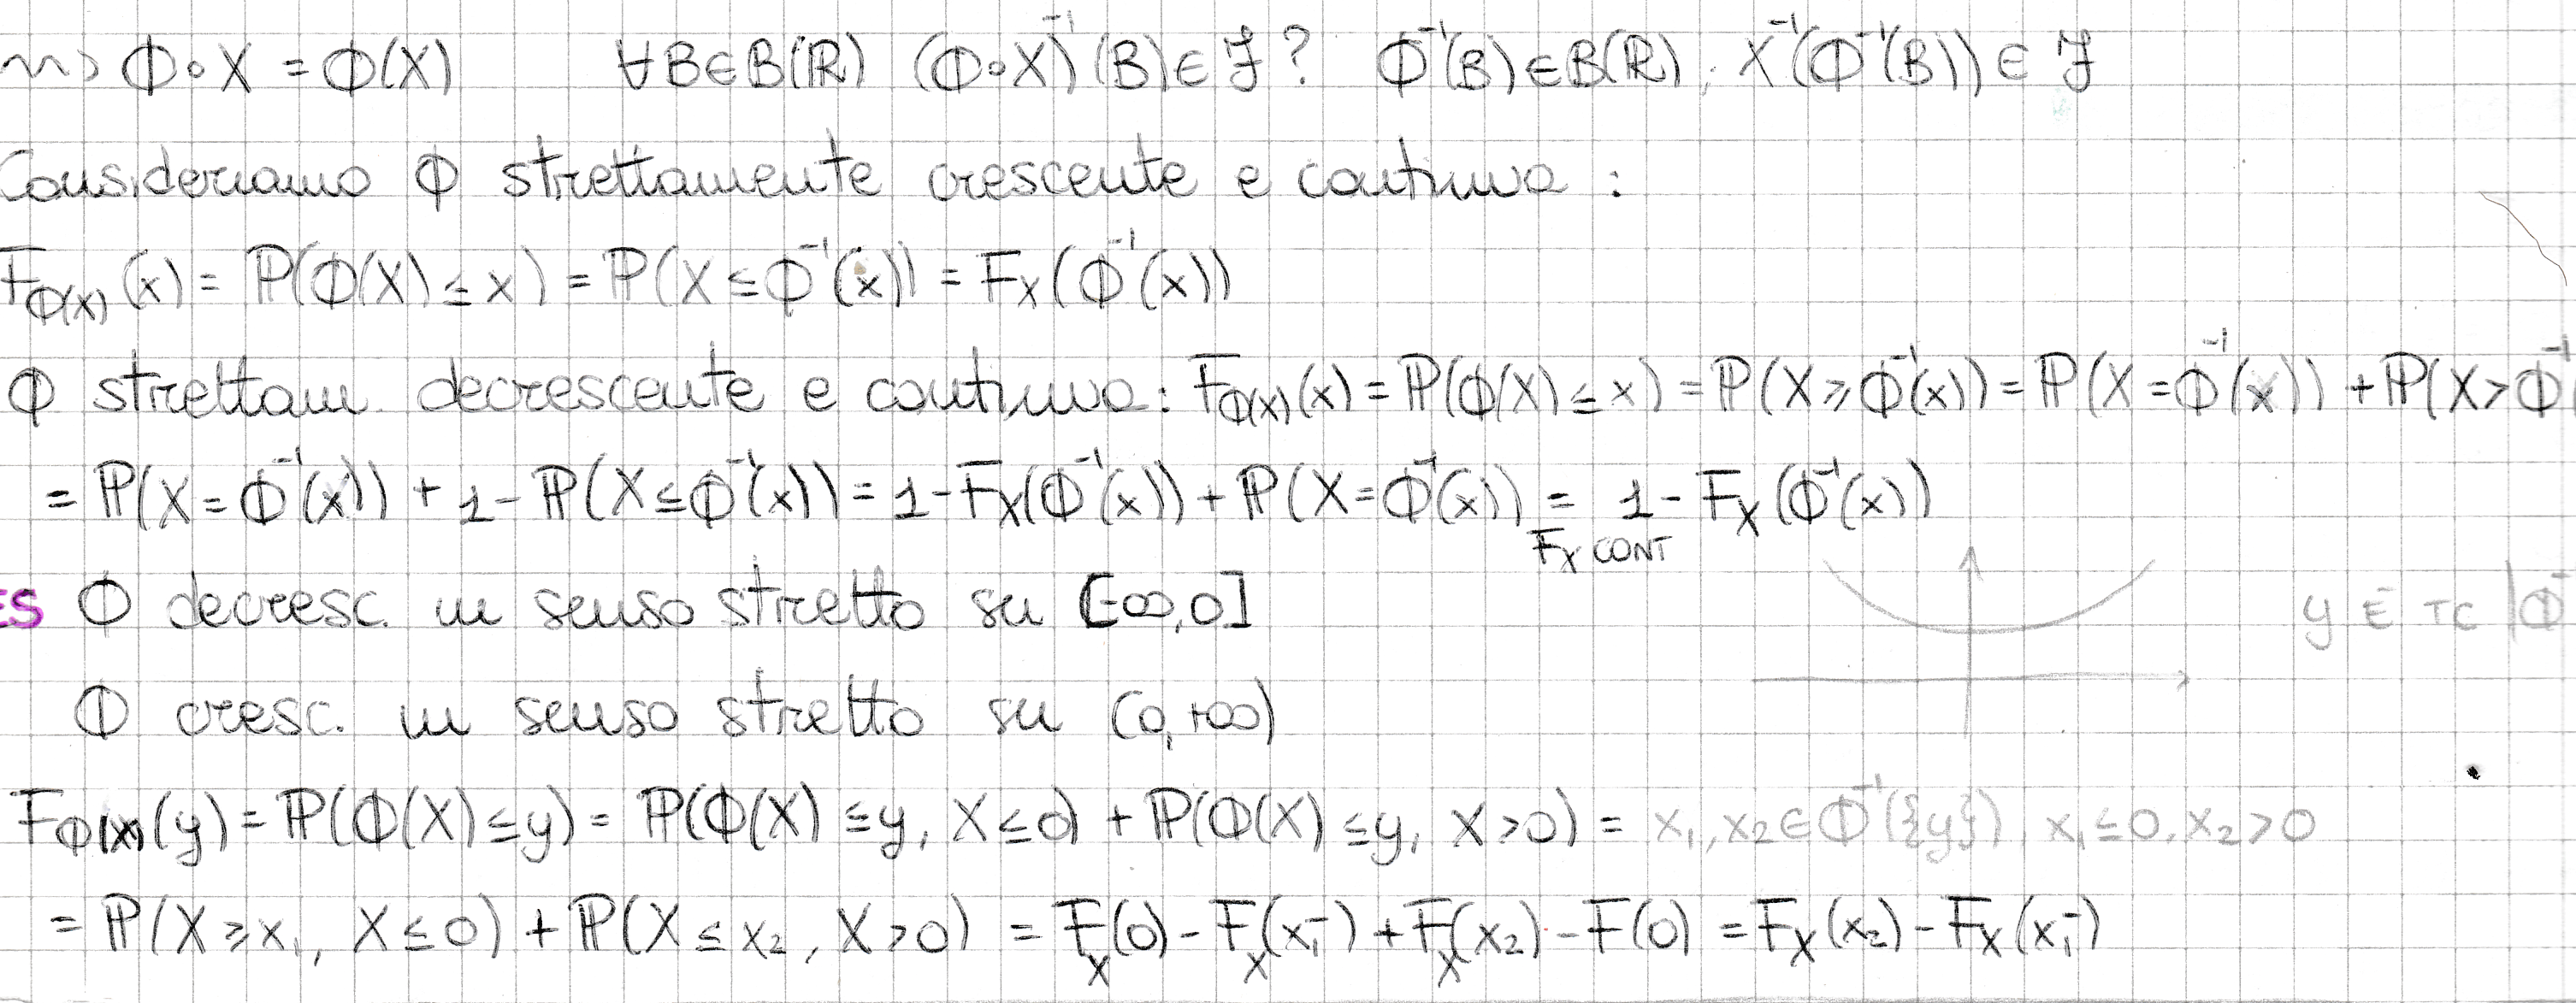 ⇝ Φ∘X = Φ(X) ∀B∈B(ℝ) (Φ∘X)⁻¹(B)∈ℱ? Φ⁻¹(B)∈B(ℝ), X⁻¹(Φ⁻¹(B))∈ℱ
Consideriamo Φ strettamente crescente e continua :
F_Φ(X)(x) = ℙ(Φ(X)≤x) = ℙ(X≤Φ⁻¹(x)) = F_X(Φ⁻¹(x))
Φ strettam. decrescente e continua: F_Φ(X)(x) = ℙ(Φ(X)≤x) = ℙ(X⩾Φ⁻¹(x)) = ℙ(X=Φ⁻¹(x)) + ℙ(X>Φ⁻¹
= ℙ(X=Φ⁻¹(x)) + 1-ℙ(X≤Φ⁻¹(x)) = 1-F_X(Φ⁻¹(x)) + ℙ(X=Φ⁻¹(x)) = 1-F_X(Φ⁻¹(x))
F_X CONT
ES Φ decresc. in senso stretto su [-∞,0]
y È TC |Φ
Φ cresc. in senso stretto su (0,+∞)
F_Φ(X)(y) = ℙ(Φ(X)≤y) = ℙ(Φ(X)≤y, X≤0) + ℙ(Φ(X)≤y, X>0) = x₁,x₂∈Φ⁻¹({y}), x₁≤0, x₂>0
= ℙ(X⩾x₁, X≤0) + ℙ(X≤x₂, X>0) = F_X(0) - F_X(x₁⁻) + F_X(x₂) - F(0) = F_X(x₂) - F_X(x₁⁻)